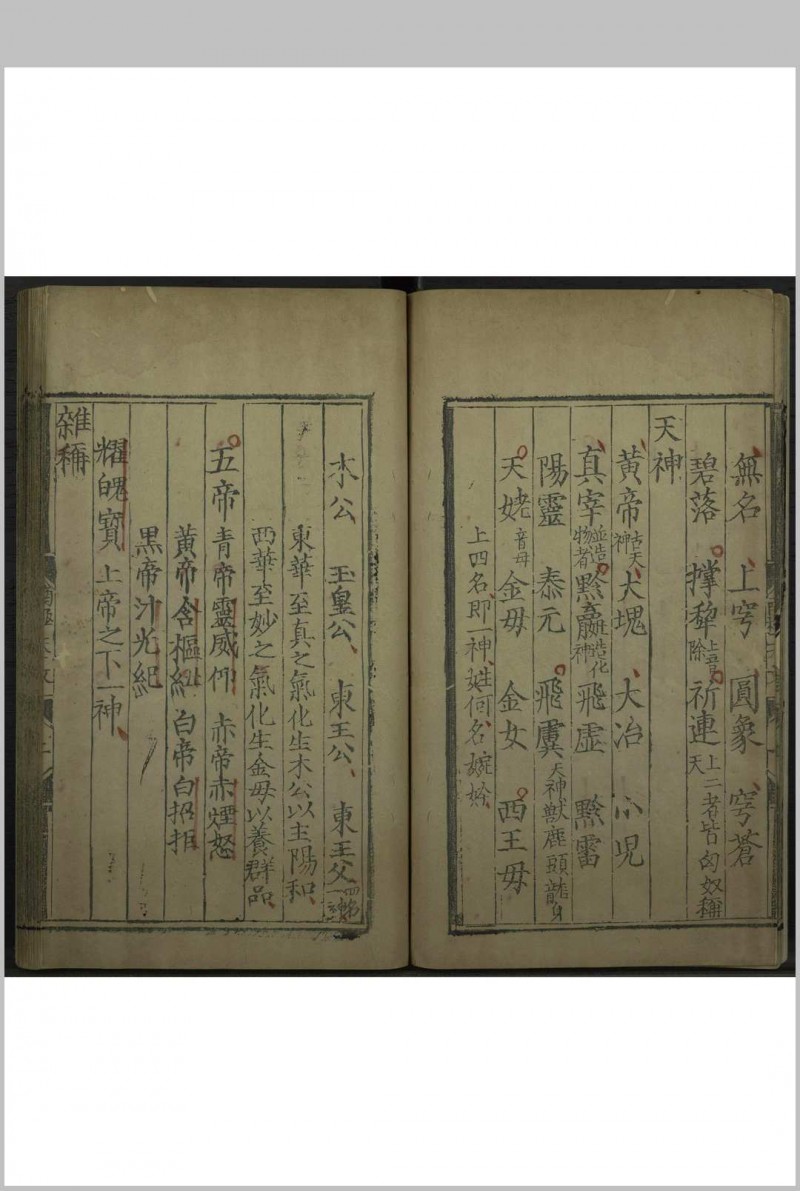 無名 上穹 圓象 穹蒼
碧落 撐犂上音除 祈連上二者皆匈奴稱天
天神
黃帝古天神 大塊 大冶 小児
真宰並造物者 黔羸造化神 飛虛 黙雷
陽靈 泰元 飛虡天神獸鹿頭龍身
天姥音母 金毋 金女 西王毋
上四名即一神姓何名婉妗
木公 玉皇公 東王公 東王父
東華至真之氣化生木公以主陽和
西華至妙之氣化生金毋以養群品
五帝 青帝靈威仰 赤帝赤熛怒
黃帝含樞紐 白帝白招拒
黑帝汁光紀
耀魄寶 上帝之下一神
雜稱